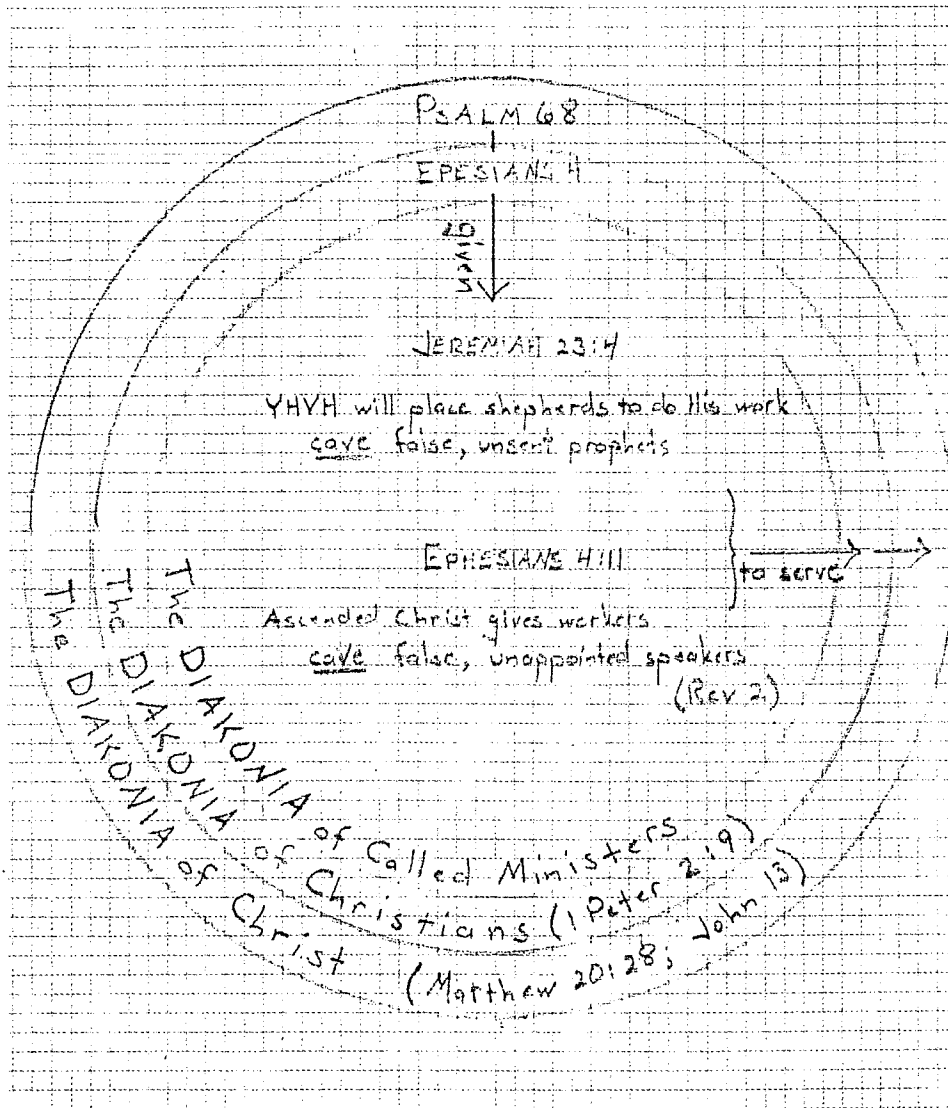 PSALM 68
EPESIANS 4
given
JEREMIAH 23:4
YHVH will place shepherds to do His work
cave false, unsent prophets
EPHESIANS 4:11
to serve
Ascended Christ gives workers
cave false, unappointed speakers
(Rev 2)
The DIAKONIA of Called Ministers
The DIAKONIA of Christians (1 Peter 2:9)
The DIAKONIA of Christ (Matthew 20:28; John 13)